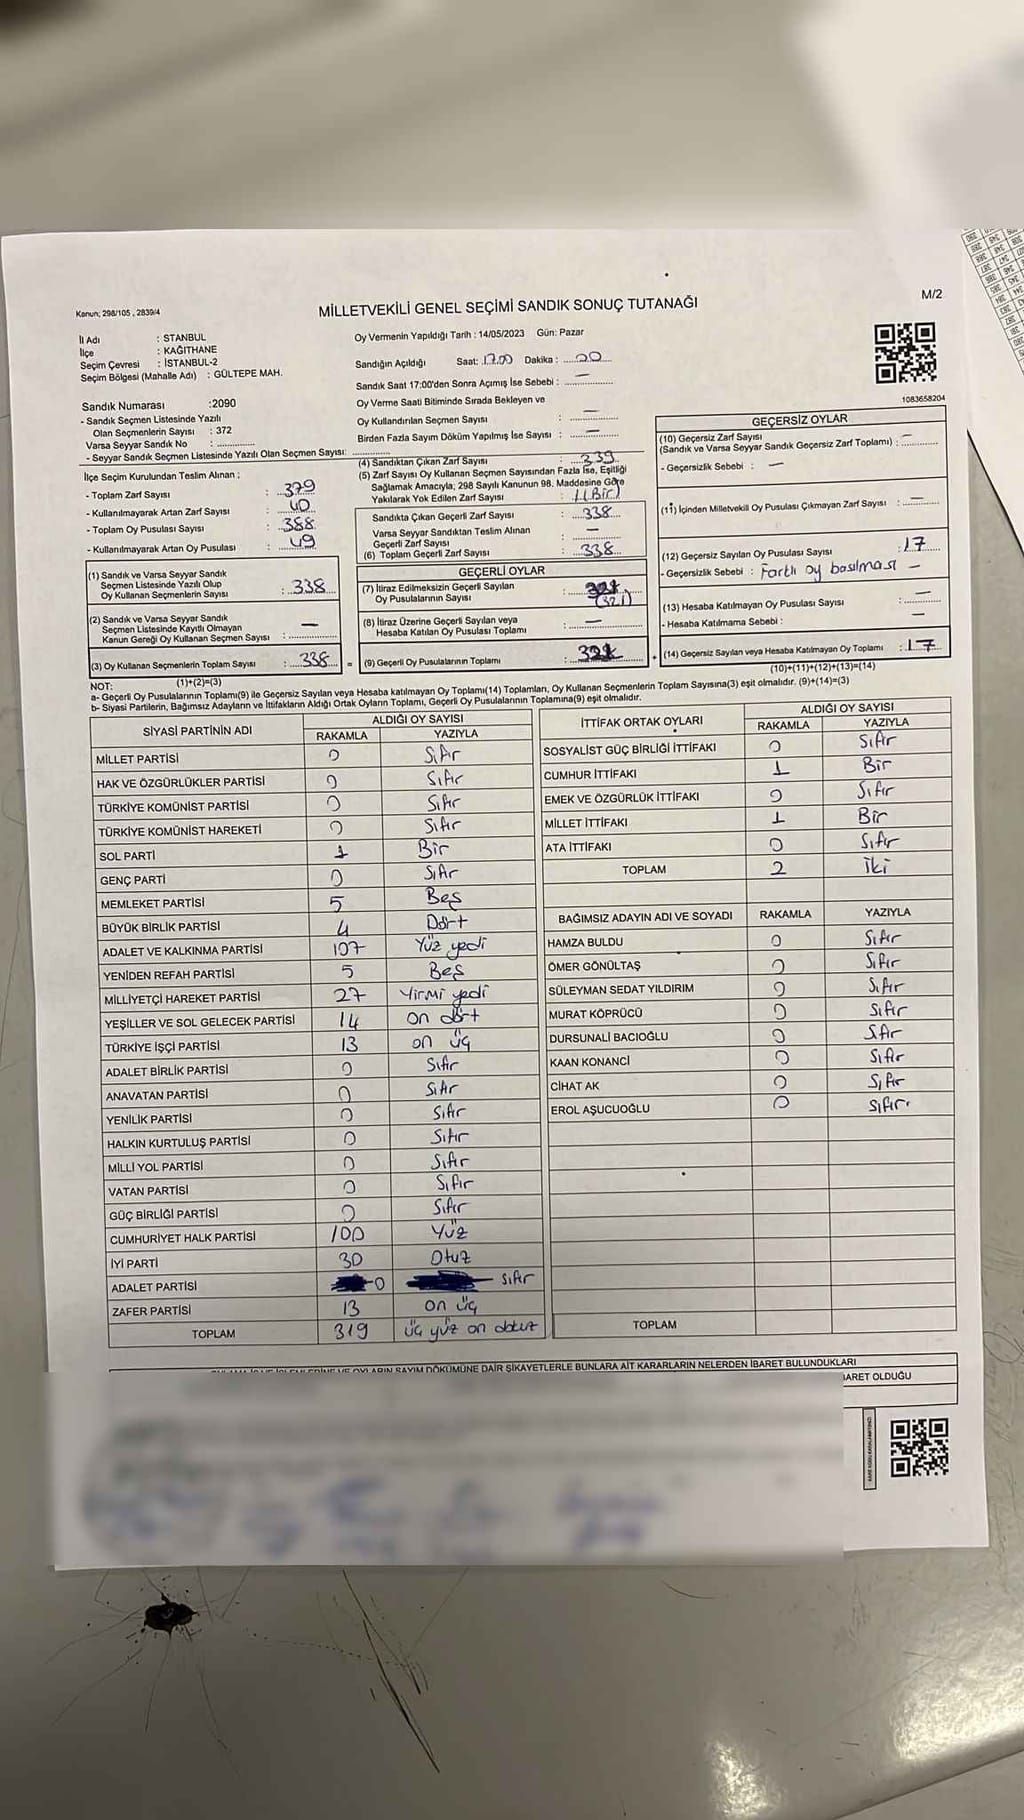 Kanun; 298/105 , 2839/4
MİLLETVEKİLİ GENEL SEÇİMİ SANDIK SONUÇ TUTANAĞI
M/2
İl Adı : STANBUL
İlçe : KAĞITHANE
Seçim Çevresi : İSTANBUL-2
Seçim Bölgesi (Mahalle Adı) : GÜLTEPE MAH.
Oy Vermenin Yapıldığı Tarih : 14/05/2023 Gün: Pazar
Sandığın Açıldığı Saat: 17.00 Dakika : 00
Sandık Saat 17:00'den Sonra Açımış İse Sebebi : —
Oy Verme Saati Bitiminde Sırada Bekleyen ve
Oy Kullandırılan Seçmen Sayısı : —
Birden Fazla Sayım Döküm Yapılmış İse Sayısı : —
1083658204
Sandık Numarası :2090
- Sandık Seçmen Listesinde Yazılı
Olan Seçmenlerin Sayısı : 372
Varsa Seyyar Sandık No :
- Seyyar Sandık Seçmen Listesinde Yazılı Olan Seçmen Sayısı:
İlçe Seçim Kurulundan Teslim Alınan :
- Toplam Zarf Sayısı : 379
- Kullanılmayarak Artan Zarf Sayısı : 40
- Toplam Oy Pusulası Sayısı : 388
- Kullanılmayarak Artan Oy Pusulası : 49
(1) Sandık ve Varsa Seyyar Sandık
Seçmen Listesinde Yazılı Olup
Oy Kullanan Seçmenlerin Sayısı : 338
(2) Sandık ve Varsa Seyyar Sandık
Seçmen Listesinde Kayıtlı Olmayan
Kanun Gereği Oy Kullanan Seçmen Sayısı : —
(3) Oy Kullanan Seçmenlerin Toplam Sayısı : 338 =
(1)+(2)=(3)
(4) Sandıktan Çıkan Zarf Sayısı : 339
(5) Zarf Sayısı Oy Kullanan Seçmen Sayısından Fazla İse, Eşitliği
Sağlamak Amacıyla; 298 Sayılı Kanunun 98. Maddesine Göre
Yakılarak Yok Edilen Zarf Sayısı : 1(Bir)
Sandıkta Çıkan Geçerli Zarf Sayısı : 338
Varsa Seyyar Sandıktan Teslim Alınan
Geçerli Zarf Sayısı : —
(6) Toplam Geçerli Zarf Sayısı : 338
GEÇERLİ OYLAR
(7) İtiraz Edilmeksizin Geçerli Sayılan
Oy Pusulalarının Sayısı : 321 (321)
(8) İtiraz Üzerine Geçerli Sayılan veya
Hesaba Katılan Oy Pusulası Toplamı : —
(9) Geçerli Oy Pusulalarının Toplamı : 321 +
GEÇERSİZ OYLAR
(10) Geçersiz Zarf Sayısı
(Sandık ve Varsa Seyyar Sandık Geçersiz Zarf Toplamı) : —
- Geçersizlik Sebebi : —
(11) İçinden Milletvekili Oy Pusulası Çıkmayan Zarf Sayısı : —
(12) Geçersiz Sayılan Oy Pusulası Sayısı : 17
- Geçersizlik Sebebi : Farklı oy basılması —
(13) Hesaba Katılmayan Oy Pusulası Sayısı : —
- Hesaba Katılmama Sebebi : —
(14) Geçersiz Sayılan veya Hesaba Katılmayan Oy Toplamı : 17
(10)+(11)+(12)+(13)=(14)
NOT:
a- Geçerli Oy Pusulalarının Toplamı(9) ile Geçersiz Sayılan veya Hesaba katılmayan Oy Toplamı(14) Toplamları, Oy Kullanan Seçmenlerin Toplam Sayısına(3) eşit olmalıdır. (9)+(14)=(3)
b- Siyasi Partilerin, Bağımsız Adayların ve İttifakların Aldığı Ortak Oyların Toplamı, Geçerli Oy Pusulalarının Toplamına(9) eşit olmalıdır.
SİYASİ PARTİNİN ADI ALDIĞI OY SAYISI
RAKAMLA YAZIYLA
MİLLET PARTİSİ 0 Sıfır
HAK VE ÖZGÜRLÜKLER PARTİSİ 0 Sıfır
TÜRKİYE KOMÜNİST PARTİSİ 0 Sıfır
TÜRKİYE KOMÜNİST HAREKETİ 0 Sıfır
SOL PARTİ 1 Bir
GENÇ PARTİ 0 Sıfır
MEMLEKET PARTİSİ 5 Beş
BÜYÜK BİRLİK PARTİSİ 4 Dört
ADALET VE KALKINMA PARTİSİ 107 Yüz yedi
YENİDEN REFAH PARTİSİ 5 Beş
MİLLİYETÇİ HAREKET PARTİSİ 27 Yirmi yedi
YEŞİLLER VE SOL GELECEK PARTİSİ 14 on dört
TÜRKİYE İŞÇİ PARTİSİ 13 on üç
ADALET BİRLİK PARTİSİ 0 Sıfır
ANAVATAN PARTİSİ 0 Sıfır
YENİLİK PARTİSİ 0 Sıfır
HALKIN KURTULUŞ PARTİSİ 0 Sıfır
MİLLİ YOL PARTİSİ 0 Sıfır
VATAN PARTİSİ 0 Sıfır
GÜÇ BİRLİĞİ PARTİSİ 0 Sıfır
CUMHURİYET HALK PARTİSİ 100 Yüz
İYİ PARTİ 30 Otuz
ADALET PARTİSİ 0 sıfır
ZAFER PARTİSİ 13 on üç
TOPLAM 319 üç yüz on dokuz
İTTİFAK ORTAK OYLARI ALDIĞI OY SAYISI
RAKAMLA YAZIYLA
SOSYALİST GÜÇ BİRLİĞİ İTTİFAKI 0 Sıfır
CUMHUR İTTİFAKI 1 Bir
EMEK VE ÖZGÜRLÜK İTTİFAKI 0 Sıfır
MİLLET İTTİFAKI 1 Bir
ATA İTTİFAKI 0 Sıfır
TOPLAM 2 İki
BAĞIMSIZ ADAYIN ADI VE SOYADI RAKAMLA YAZIYLA
HAMZA BULDU 0 Sıfır
ÖMER GÖNÜLTAŞ 0 Sıfır
SÜLEYMAN SEDAT YILDIRIM 0 Sıfır
MURAT KÖPRÜCÜ 0 Sıfır
DURSUNALİ BACIOĞLU 0 Sıfır
KAAN KONANCİ 0 Sıfır
CİHAT AK 0 Sıfır
EROL AŞUCUOĞLU 0 Sıfır.
TOPLAM
OYLARIN SAYIM DÖKÜMÜNE DAİR ŞİKAYETLERLE BUNLARA AİT KARARLARIN NELERDEN İBARET BULUNDUKLARI
OLDUĞU